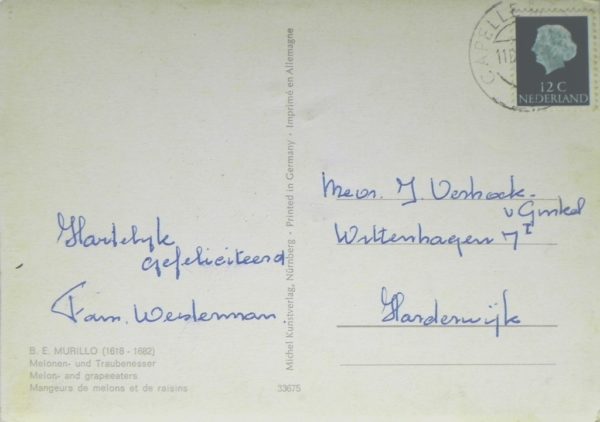 Hartelyk
gefeliciteerd
Fam. Westerman.
B. E. MURILLO (1618 - 1682)
Melonen- und Traubenesser
Melon- and grapeeaters
Mangeurs de melons et de raisins
33675
Michel Kunstverlag, Nürnberg • Printed in Germany • Imprimé en Allemagne
CAPELLE
12 C
NEDERLAND
Mevr. J. Verhoek-
v Ginkel
Wiltenhagen 7 I
Harderwijk